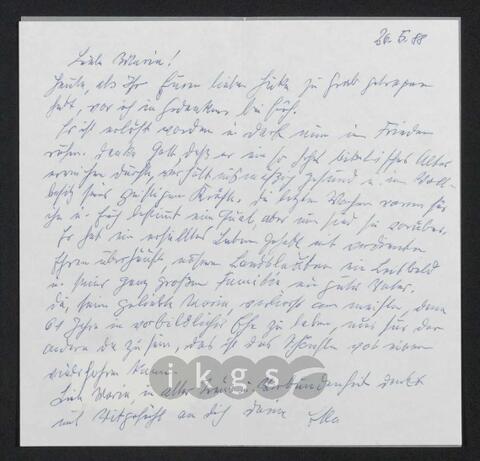 26.5.88
Liebe Maria!
Heute, als Ihr Euren lieben zu Grab getragen
habt, war ich in Gedanken bei Euch.
Er ist erlöst worden u. darf nun im Frieden
ruhn. Danke Gott, daß er ein so hohes biblisches Alter
erreichen durfte, verhältnismäßig gesund u. im Voll-
besitz seiner geistigen Kräfte. Die letzten Wochen waren für
ihn u. Euch bestimmt ein, aber nun sind sie vorüber.
Er hat ein erfülltes Leben gehabt mit verdienten
Ehren überhäuft, unseren Landsleuten ein Leitbild
u. seiner ganz großen Familie ein guter Vater.
Du, seine geliebte Maria, verlierst am meisten, denn
61 Jahre in vorbildlicher Ehe zu leben, eines für den
andern da zu sein, das ist das Schönste was einem
widerfahren kann.
Liebe Maria, in alter Verbundenheit denkt
mit Mitgefühl an Dich Deine
ikgs